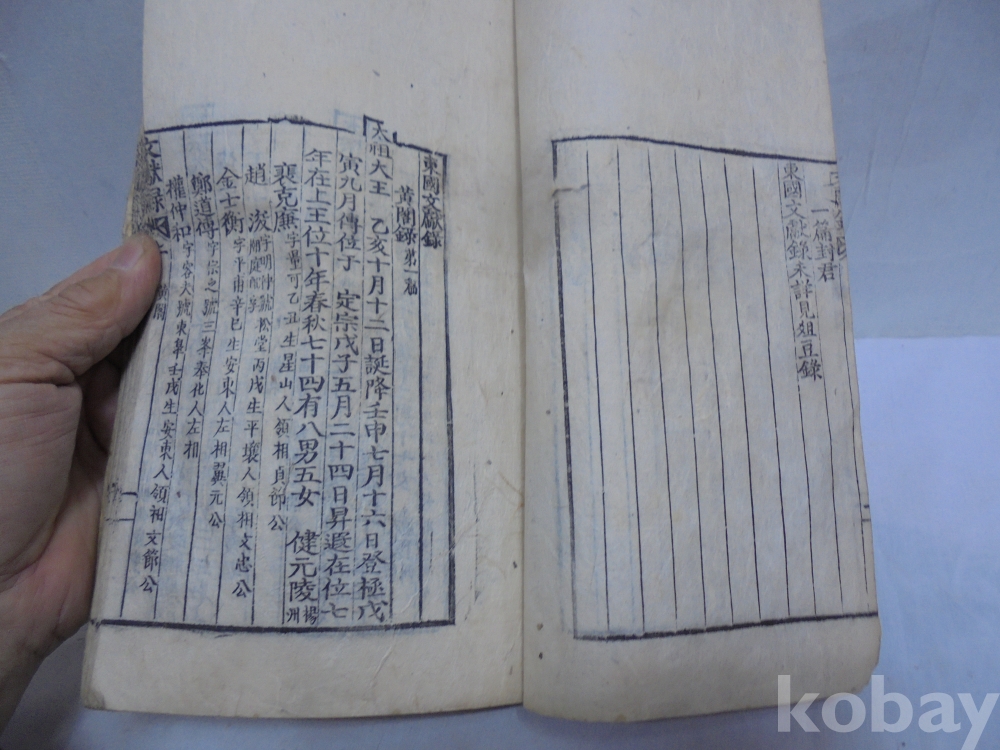 一篇封君
東國文獻錄未詳見俎豆錄
東國文獻錄
黃閣錄 第一編
太祖大王 乙亥十月十二日誕降壬申七月十六日登極戊
寅九月傳位于 定宗戊子五月二十四日昇遐在位七
年在上王位十年春秋七十四有八男五女 健元陵 楊州
裵克廉 字量可乙丑生星山人領相貞節公
趙浚 字明仲號松堂丙戌生平壤人領相文忠公
金士衡 字平甫辛巳生安東人左相翼元公
鄭道傳 字宗之號三峯奉化人左相
權仲和 字容夫號東皐壬戌生安東人領相文節公
文獻錄
kobay